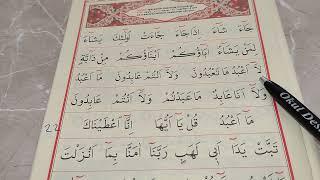 جَٓاءَ شَٓاءَ اِذَا جَٓاءَ جَٓاءَتْ اُو۬لٰٓئِكَ يَشَٓاءُ
لِمَنْ يَشَٓاءُ اٰبَٓاؤُ۬كُمْ اَبْنَٓاؤُ۬كُمْ مِنْ دَٓابَّةٍ
لَٓا اَعْبُدُ مَا تَعْبُدُونَ وَلَٓا اَنْتُمْ عَابِدُونَ مَٓا اَعْبُدُ
وَلَٓا اَنَا۬ عَابِدٌ مَا عَبَدْتُمْ وَلَٓا اَنْتُمْ عَابِدُونَ
مَٓا اَعْبُدُ قُلْ يَٓا اَيُّهَا اِنَّٓا اَعْطَيْنَاكَ
تَبَّتْ يَدَٓا اَبٖي لَهَبٍ رَبَّنَٓا اٰمَنَّا بِمَٓا اَنْزَلْتَ
22
Okul Des